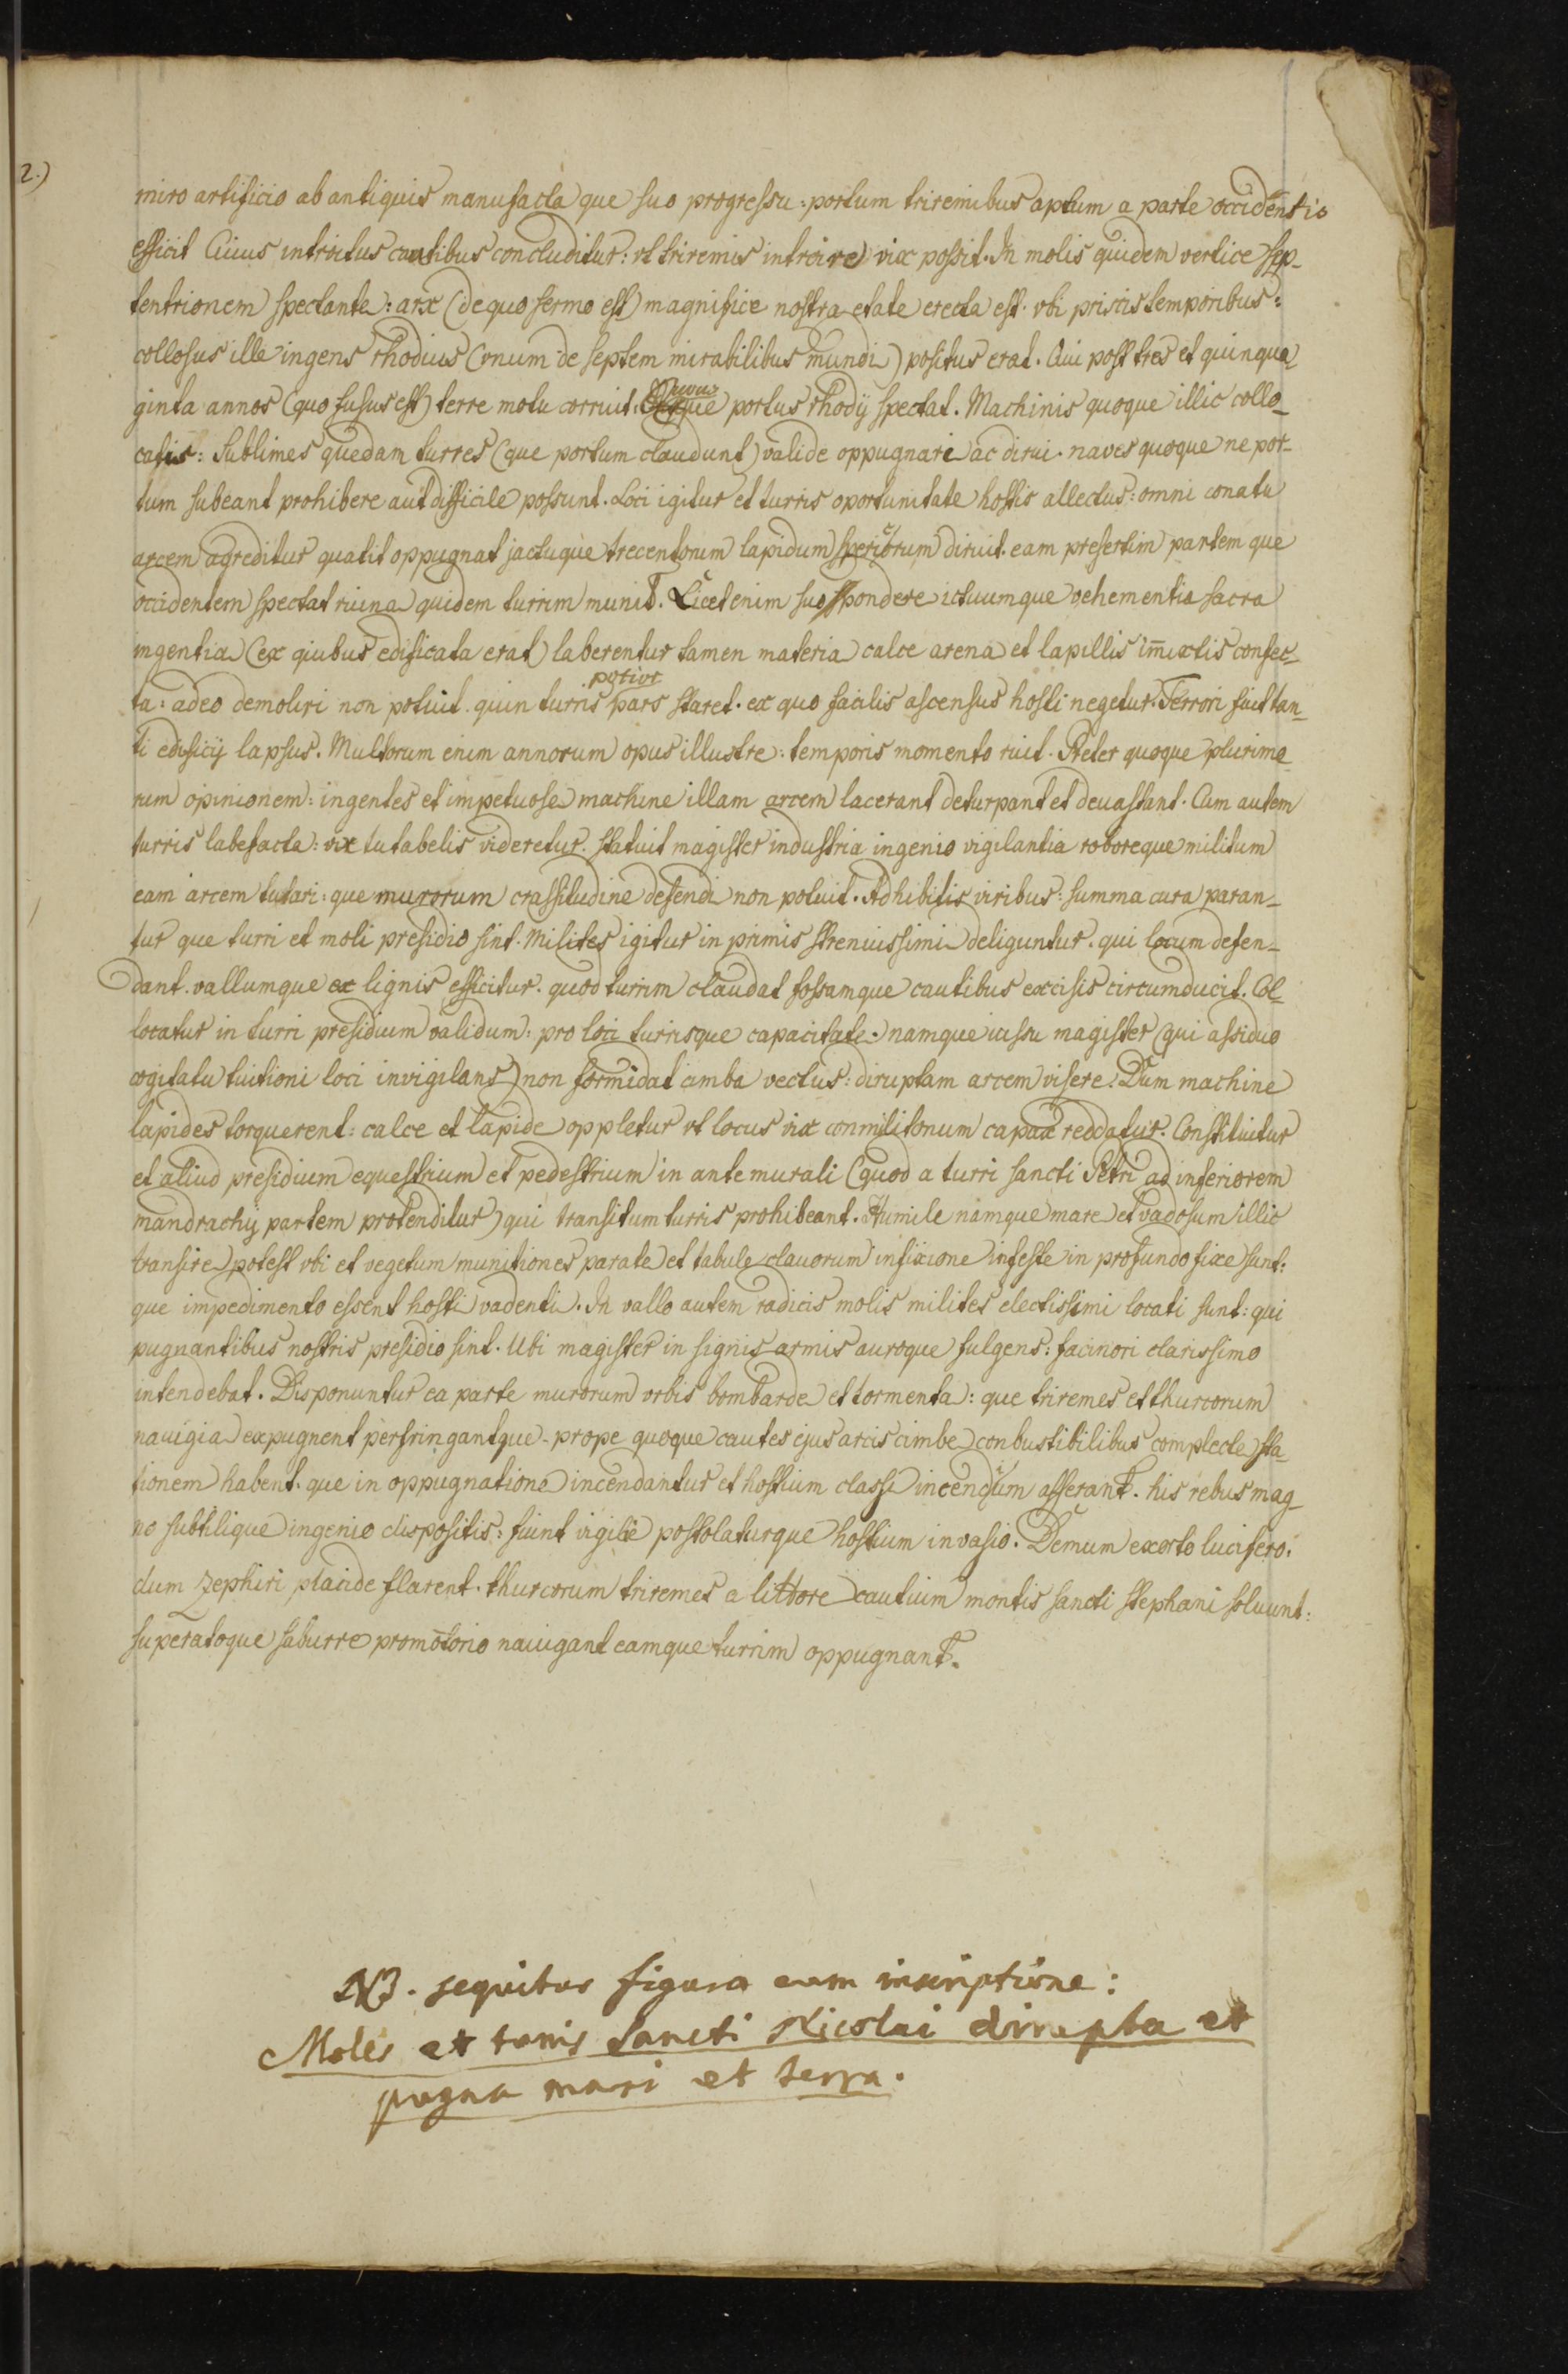 2.)
miro artificio ab antiquis manufacta que suo progressu: portum triremibus aptum a parte occidentis
efficit Cuius introitus cautibus concluditur: vt triremis introire vix possit. In molis quidem vertice sep-
tentrionem spectante: arx (de quo sermo est) magnifice nostra etate erecta est. vbi priscis temporibus:
collosus ille ingens rhodius (vnum de septem mirabilibus mundi) positus erat. Qui post tres et quinqua-
ginta annos (quo fusus est) terre motu corruit. portus rhodij spectat. Machinis quoque illic collo-
catis: sublimes quedam turres (que portum claudunt) valide oppugnari ac dirui. naves quoque ne por-
tum subeant prohibere aut difficile possunt. Loci igitur et turris oportunitate hostis allectus: omni conatu
arcem agreditur quatit oppugnat jactuque trecentorum lapidum spericorum diruit. eam presertim partem que
occidentem spectat ruina quidem turrim munit. Licet enim suo pondere ictuumque vehementia saxa
ingentia (ex quibus edificata erat) laberentur tamen materia calce arena et lapillis im̄ixtis confec-
ta: adeo demoliri non potuit. quin turris potior pars staret. ex quo facilis ascensus hosti negetur. Terrori fuit tan-
ti edificij lapsus. Multorum enim annorum opus illustre: temporis momento ruit. Preter quoque plurimo-
rum opinionem: ingentes et impetuose machine illam arcem lacerant deturpant et devastant. Cum autem
turris labefacta: vix tutabelis videretur. statuit magister industria ingenio vigilantia roboreque militum
eam arcem tutari: que murorum crassitudine defendi non potuit. Adhibitis viribus: summa cura paran-
tur que turri et moli presidio sint. Milites igitur in primis strenuissimi deliguntur. qui locum defen-
dant. vallumque ex lignis efficitur. quod turrim claudat fossamque cautibus excisis circumducit. Col-
locatur in turri presidium validum: pro loci turrisque capacitate. namque iussu magister (qui assiduo
cogitatu tuitioni loci invigilans) non formidat cimba vectus: diruptam arcem visere. Dum machine
lapides torquerent: calce et lapide oppletur vt locus vix conmilitonum capax reddatur. Constituitur
et aliud presidium equestrium et pedestrium in antemurali (quod a turri sancti Petri ad inferiorem
mandrachij partem protenditur) qui transitum turris prohibeant. Humile namque mare et vadosum illic
transire potest vbi et vegetum munitiones parate et tabule clauorum infixione infeste in profundo fixe sunt:
que impedimento essent hosti vadenti. In vallo autem radicis molis milites electissimi locati sunt: qui
pugnantibus nostris presidio sint. Ubi magister in signis armis auroque fulgens: facinori clarissimo
intendebat. Disponuntur ea parte murorum vrbis bombarde et tormenta: que triremes et thurcorum
nauigia expugnent perfringantque. prope quoque cautes ejus arcis cimbe conbustibilibus complecte sta-
tionem habent. que in oppugnatione incendantur et hostium classi incendium afferant. his rebus mag-
no subtilique ingenio dispositis: fiunt vigilie postolaturque hostium invasio. Demum exorto lucifero:
dum zephiri placide flarent. thurcorum triremes a littore cautium montis sancti stephani soluunt:
superatoque saburre promotorio nauigant eamque turrim oppugnant.
NB. sequitur figura cum inscriptione:
Moles et turris Sancti Nicolai dirrupta et
pugna mari et terra.